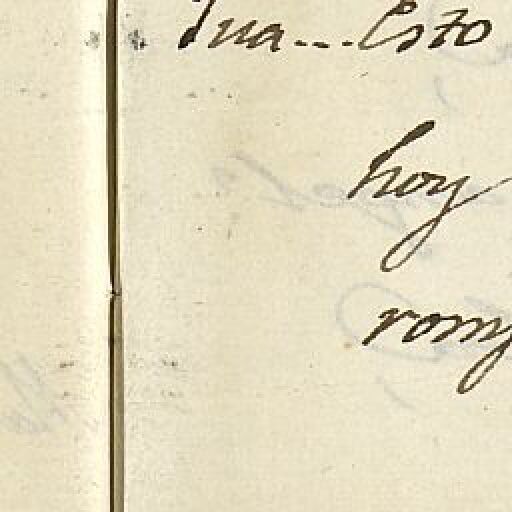 dua...Esto
hoy
romp